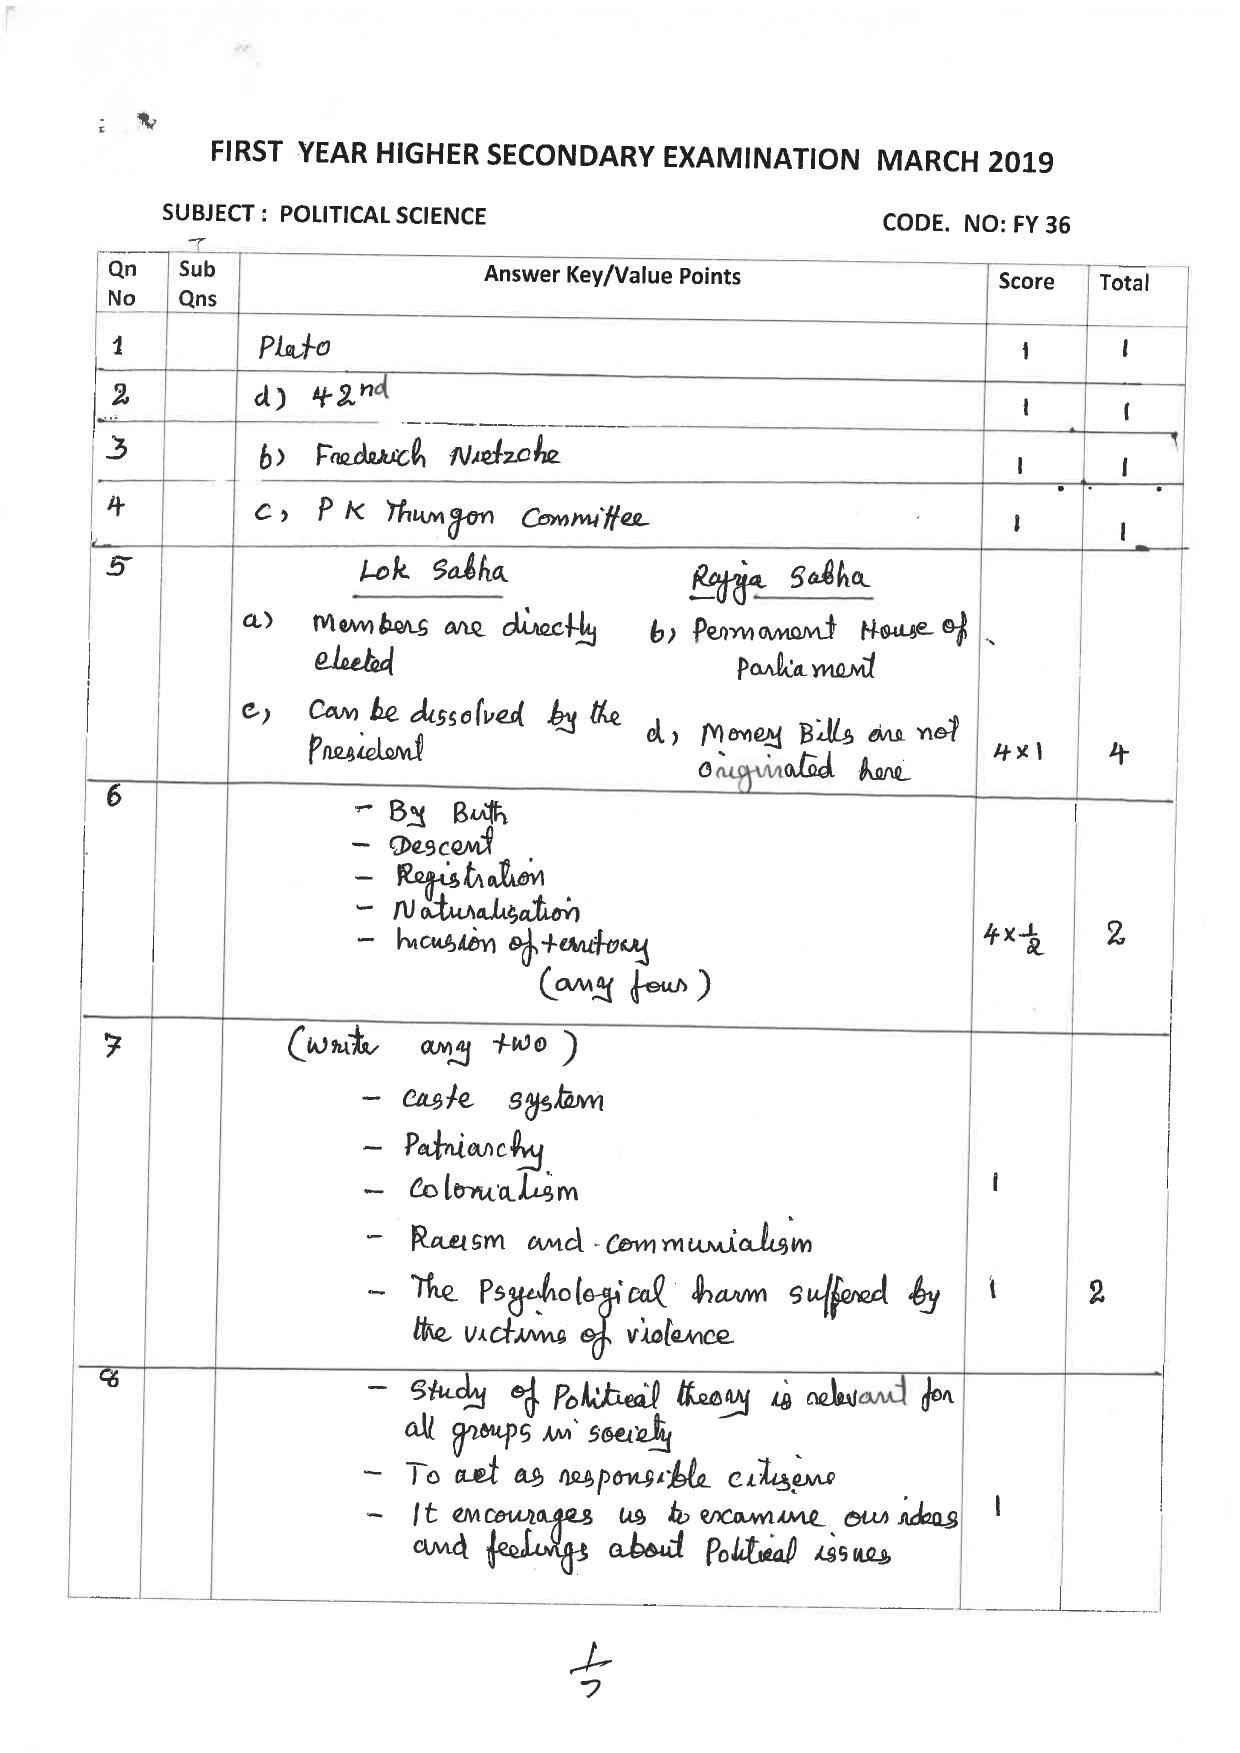 FIRST YEAR HIGHER SECONDARY EXAMINATION MARCH 2019
SUBJECT : POLITICAL SCIENCE CODE. NO: FY 36
Qn No Sub Qns Answer Key/Value Points Score Total
1 Plato 1 1
2 d) 42nd 1 1
3 b) Frederich Nietzche 1 1
4 c) P K Thungon Committee 1 1
5 Lok Sabha Rajya Sabha
a) Members are directly b) Permanent House of
elected Parliament
c) Can be dissolved by the d) Money Bills are not
President originated here 4x1 4
6 - By Buth
- Descent
- Registration
- Naturalisation
- Incusion of territory 4x1/2 2
(any four)
7 (Write any two)
- Caste system
- Patriarchy
- Colonialism 1
- Racism and communialism
- The Psychological harm suffered by 1 2
the victims of violence
8 - Study of Political theory is relevant for
all groups in society
- To act as responsible citizens
- It encourages us to examine our ideas 1
and feelings about Political issues